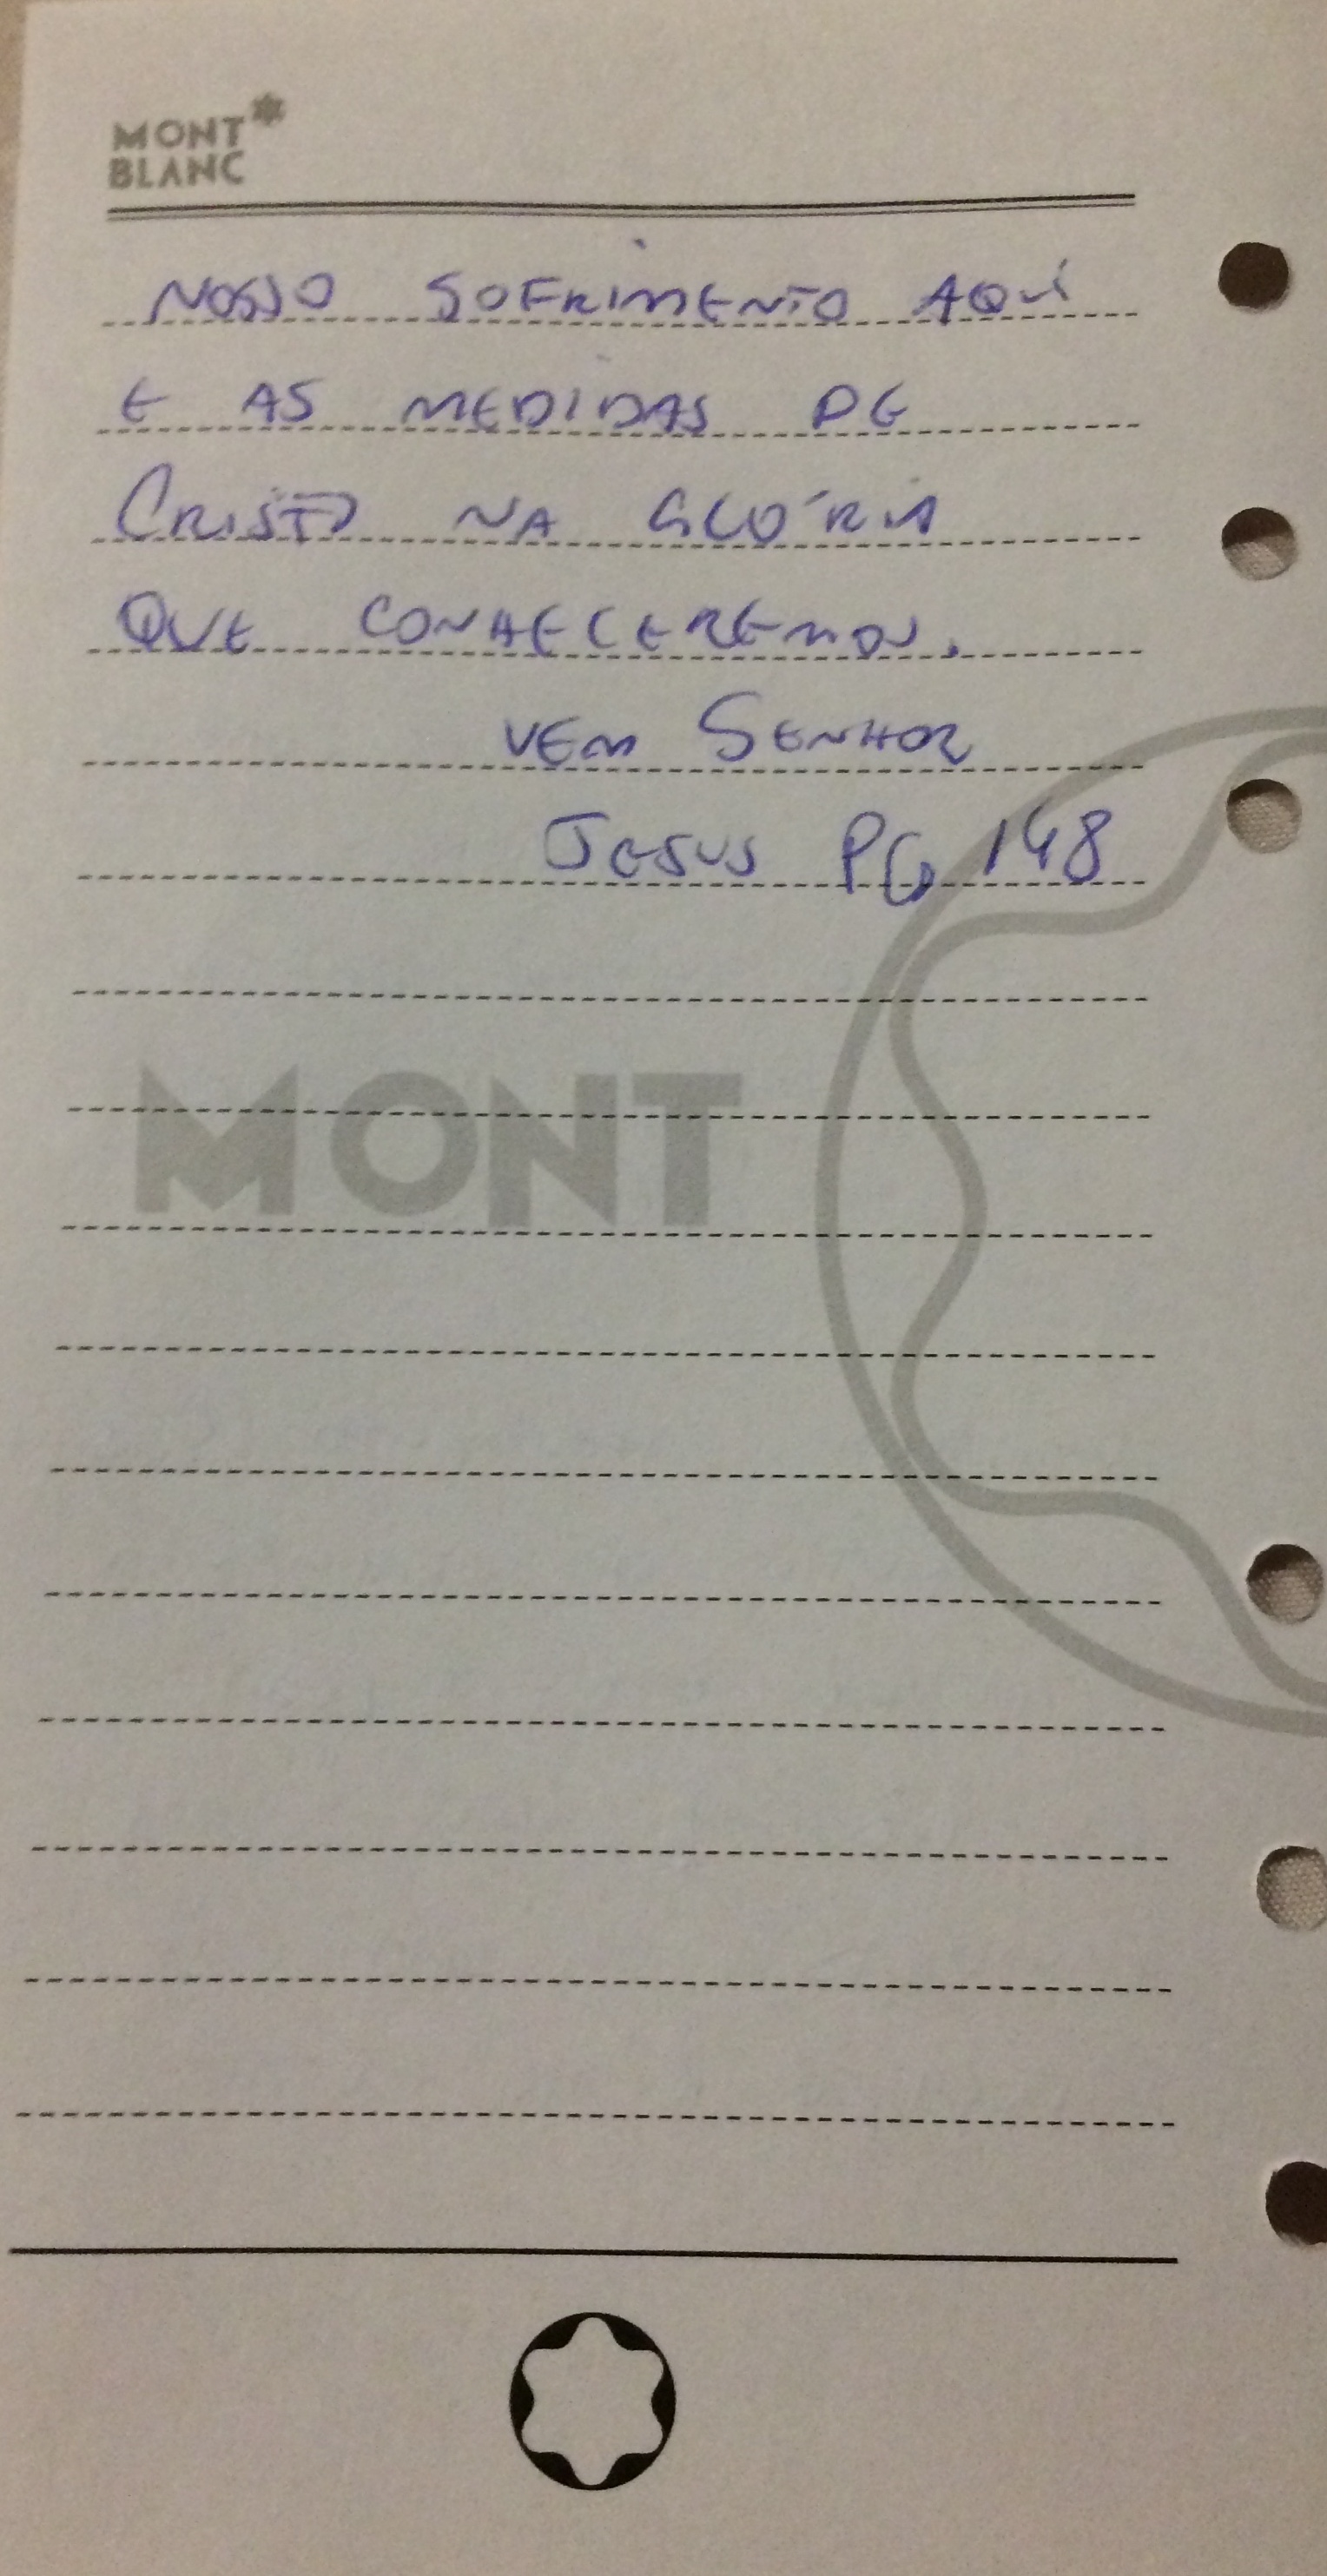 MONT
BLANC
NOSSO SOFRIMENTO AQUÍ
E AS MEDIDAS DE
CRISTO NA GLÓRIA
QUE CONHECEREMOS.
VEM SENHOR
JESUS PG 148
MONT